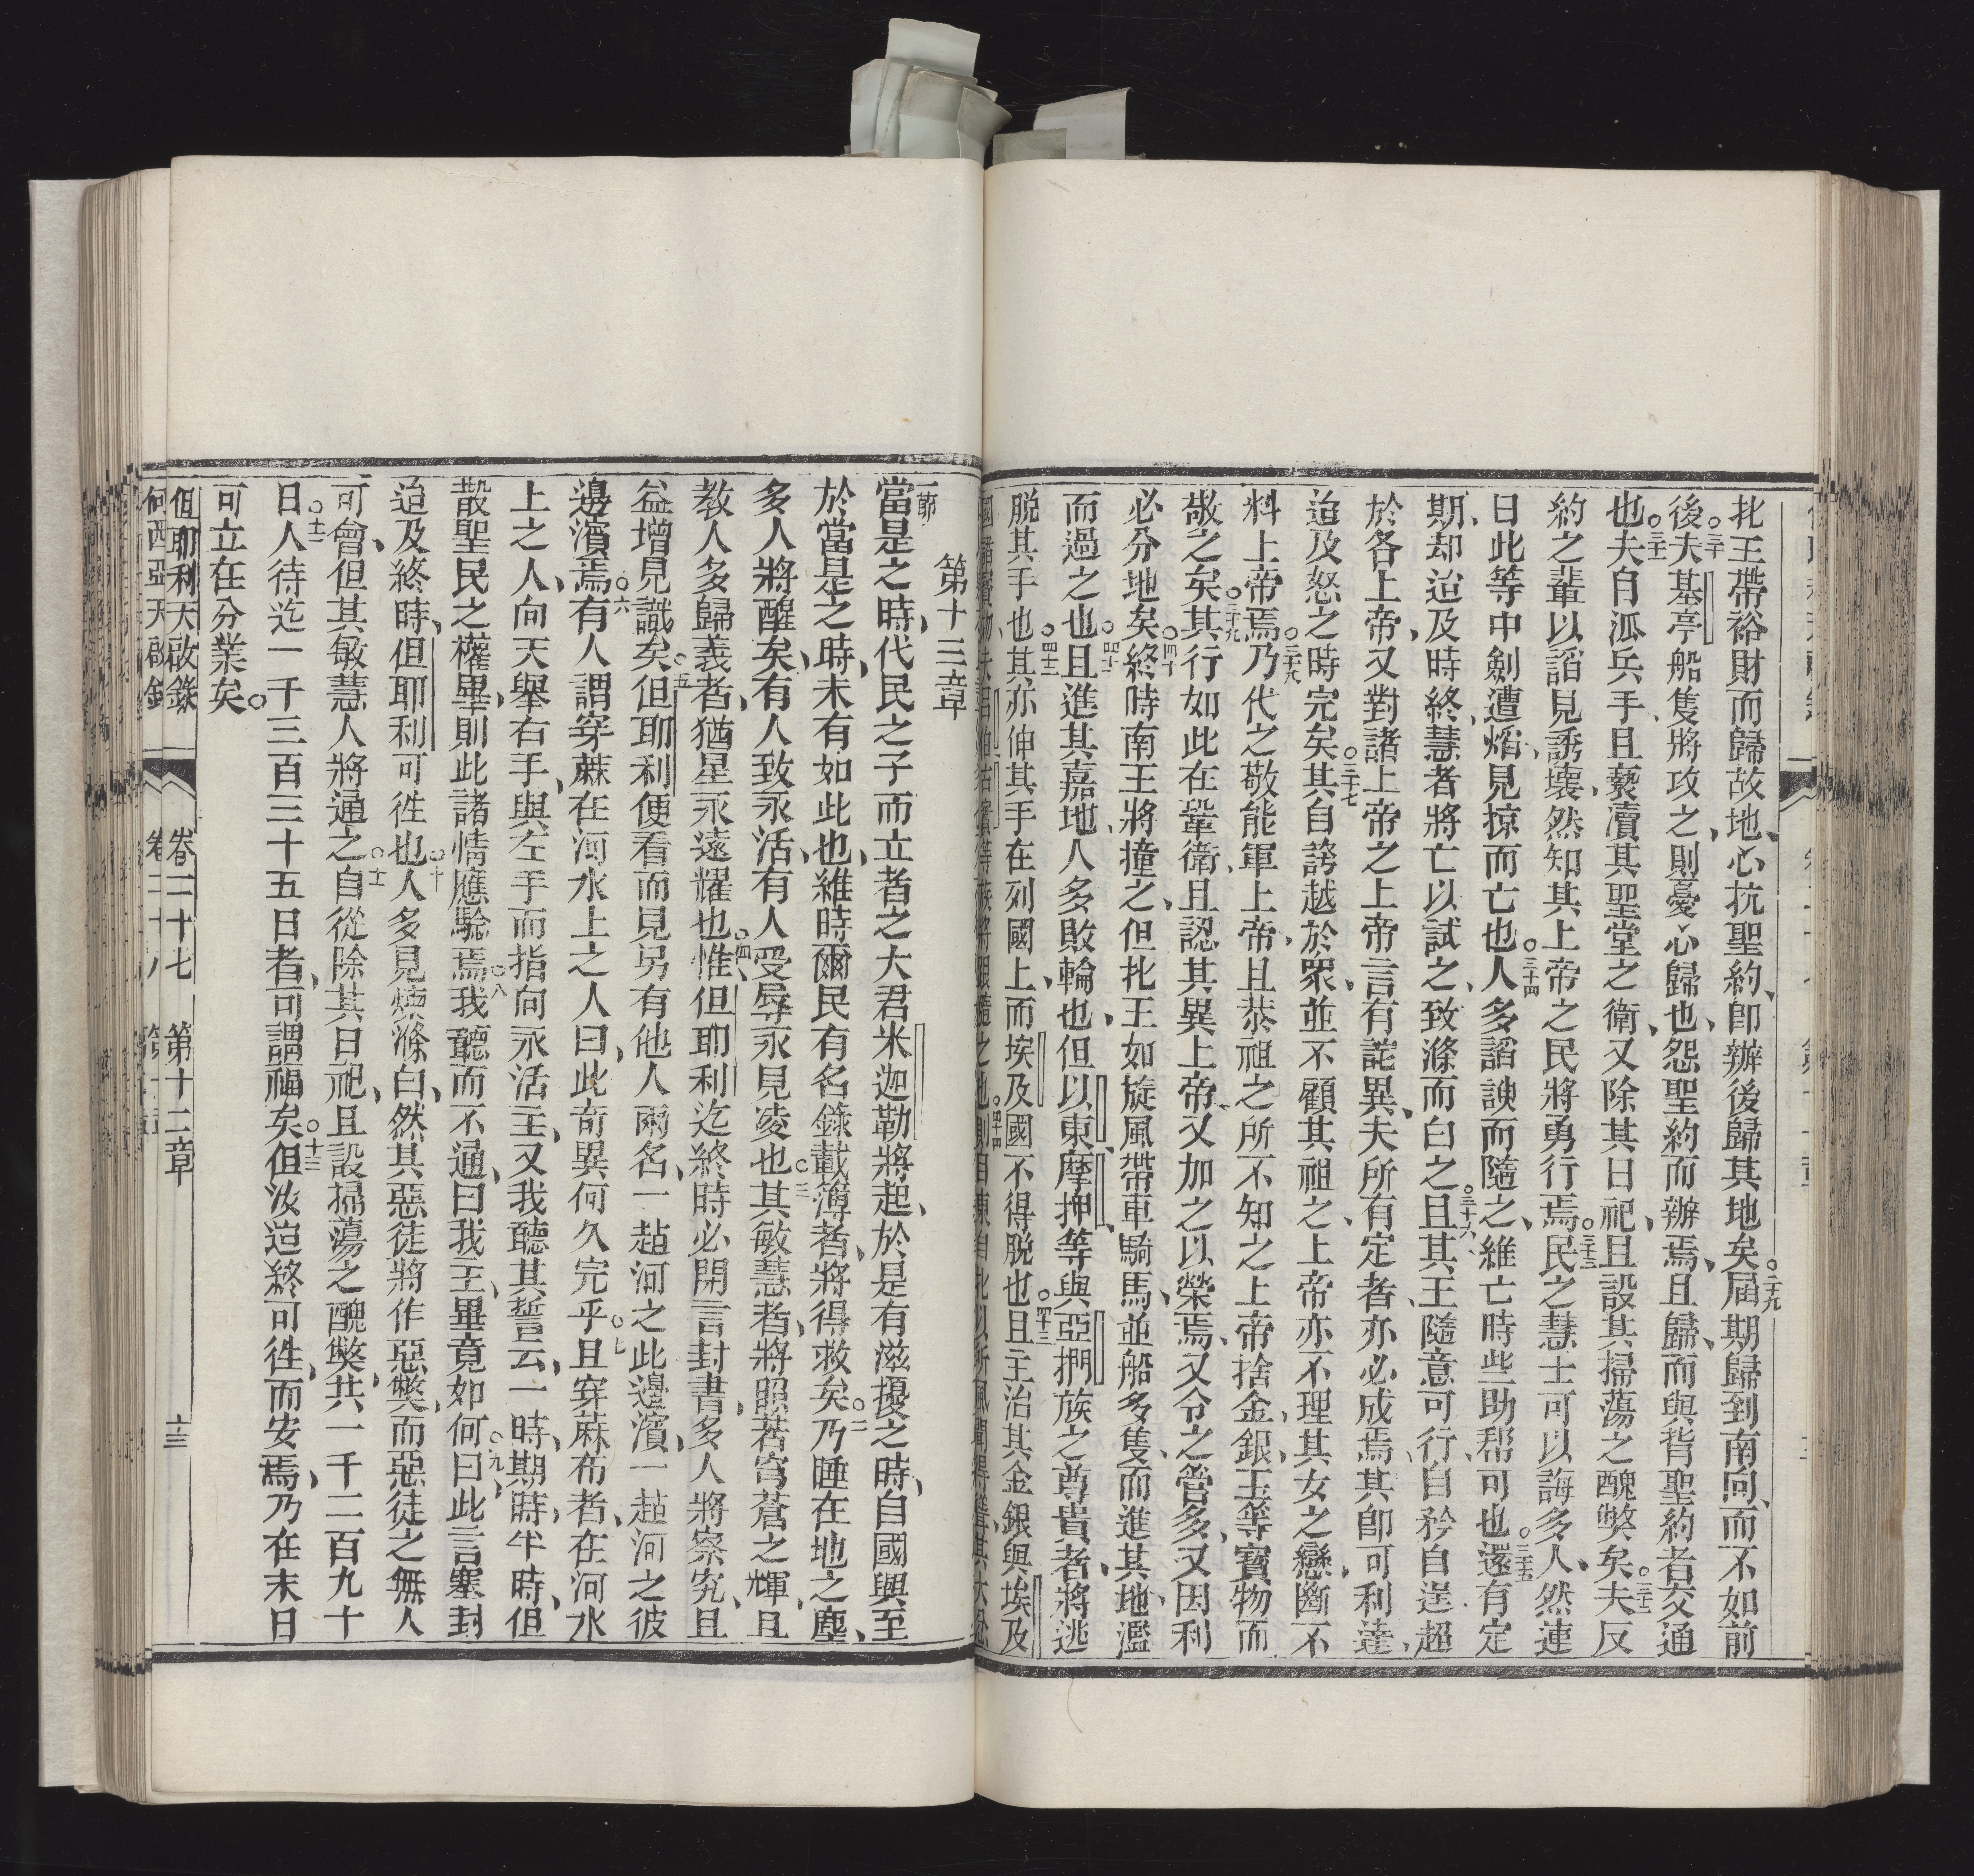 北王帶裕財而歸故地、心抗聖約、卽辦後歸其地矣。二十九屆期歸到南向、而不如前
後。三十夫基亭船隻將攻之、則憂心歸也、怨聖約而辦焉、且歸、而與背聖約者交通
也。三十一夫自派兵手、且褻瀆其聖堂之衛、又除其日祀、且設其掃蕩之醜獘矣。三十二夫反
約之輩以謟見誘壞、然知其上帝之民將勇行焉。三十三民之慧士可以誨多人、然連
日此等中劍遭焰、見掠而亡也。三十四人多謟諛而隨之、維亡時些助幇可也。三十五還有定
期、却迨及時終、慧者將亡以試之、致滌而白之。三十六且其王隨意可行、自矜自逞超
於各上帝、又對諸上帝之上帝言有詫異、夫所有定者亦必成焉、其卽可利達、
迨及怒之時完矣。三十七其自誇越於眾、並不顧其祖之上帝、亦不理其女之戀、斷不
料上帝焉。三十八乃代之敬能軍上帝、且恭祖之所不知之上帝、捨金、銀、玉等寶物而
敬之矣。三十九其行如此在鞏衛、且認其異上帝、又加之以榮焉、又令之管多、又因利
必分地矣。四十終時南王將撞之、但北王如旋風帶車騎馬、並船多隻、而進其地、濫
而過之也。四十一且進其嘉地、人多敗輪也、但以東、摩押等與亞捫族之尊貴者、將逃
脫其手也。四十二其亦伸其手在列國上、而埃及國不得脫也。四十三且主治其金銀與埃及
第十二章
一節當是之時、代民之子而立者之大君米迦勒將起、於是有滋擾之時、自國興至
於當是之時、未有如此也、維時爾民有名錄載簿者、將得救矣。二乃睡在地之塵、
多人將醒矣、有人致永活、有人受辱永見凌也。三其敏慧者、將照若穹蒼之輝、且
教人多歸義者、猶星永遠耀也。四惟但耶利迄終時必開言封書、多人將察究、且
益增見識矣。五但耶利便看而見另有他人兩名、一趈河之此邊濱、一趈河之彼
邊濱焉。六有人謂穿蔴在河水上之人曰、此奇異何久完乎。七且穿蔴布者、在河水
上之人、向天舉右手、與左手而指向永活主、又我聽其誓云、一時、期、時、半時、但
散聖民之權畢、則此諸情應驗焉。八我聽而不通、曰我主、畢竟如何。九曰、此言塞封
迨及終時、但耶利可徃也。十人多見煉滌白、然其惡徒將作惡獘、而惡徒之無人
可會、但其敏慧人將通之。十一自從除其日祀、且設掃蕩之醜獘、共一千二百九十
日。十二人待迄一千三百三十五日者、可謂福矣。十三但汝迨終可徃、而安焉、乃在末日
可立在分業矣。
但耶利天啟錄 卷二十七 第十二章 六十三
何西亞天啟錄 卷二十八